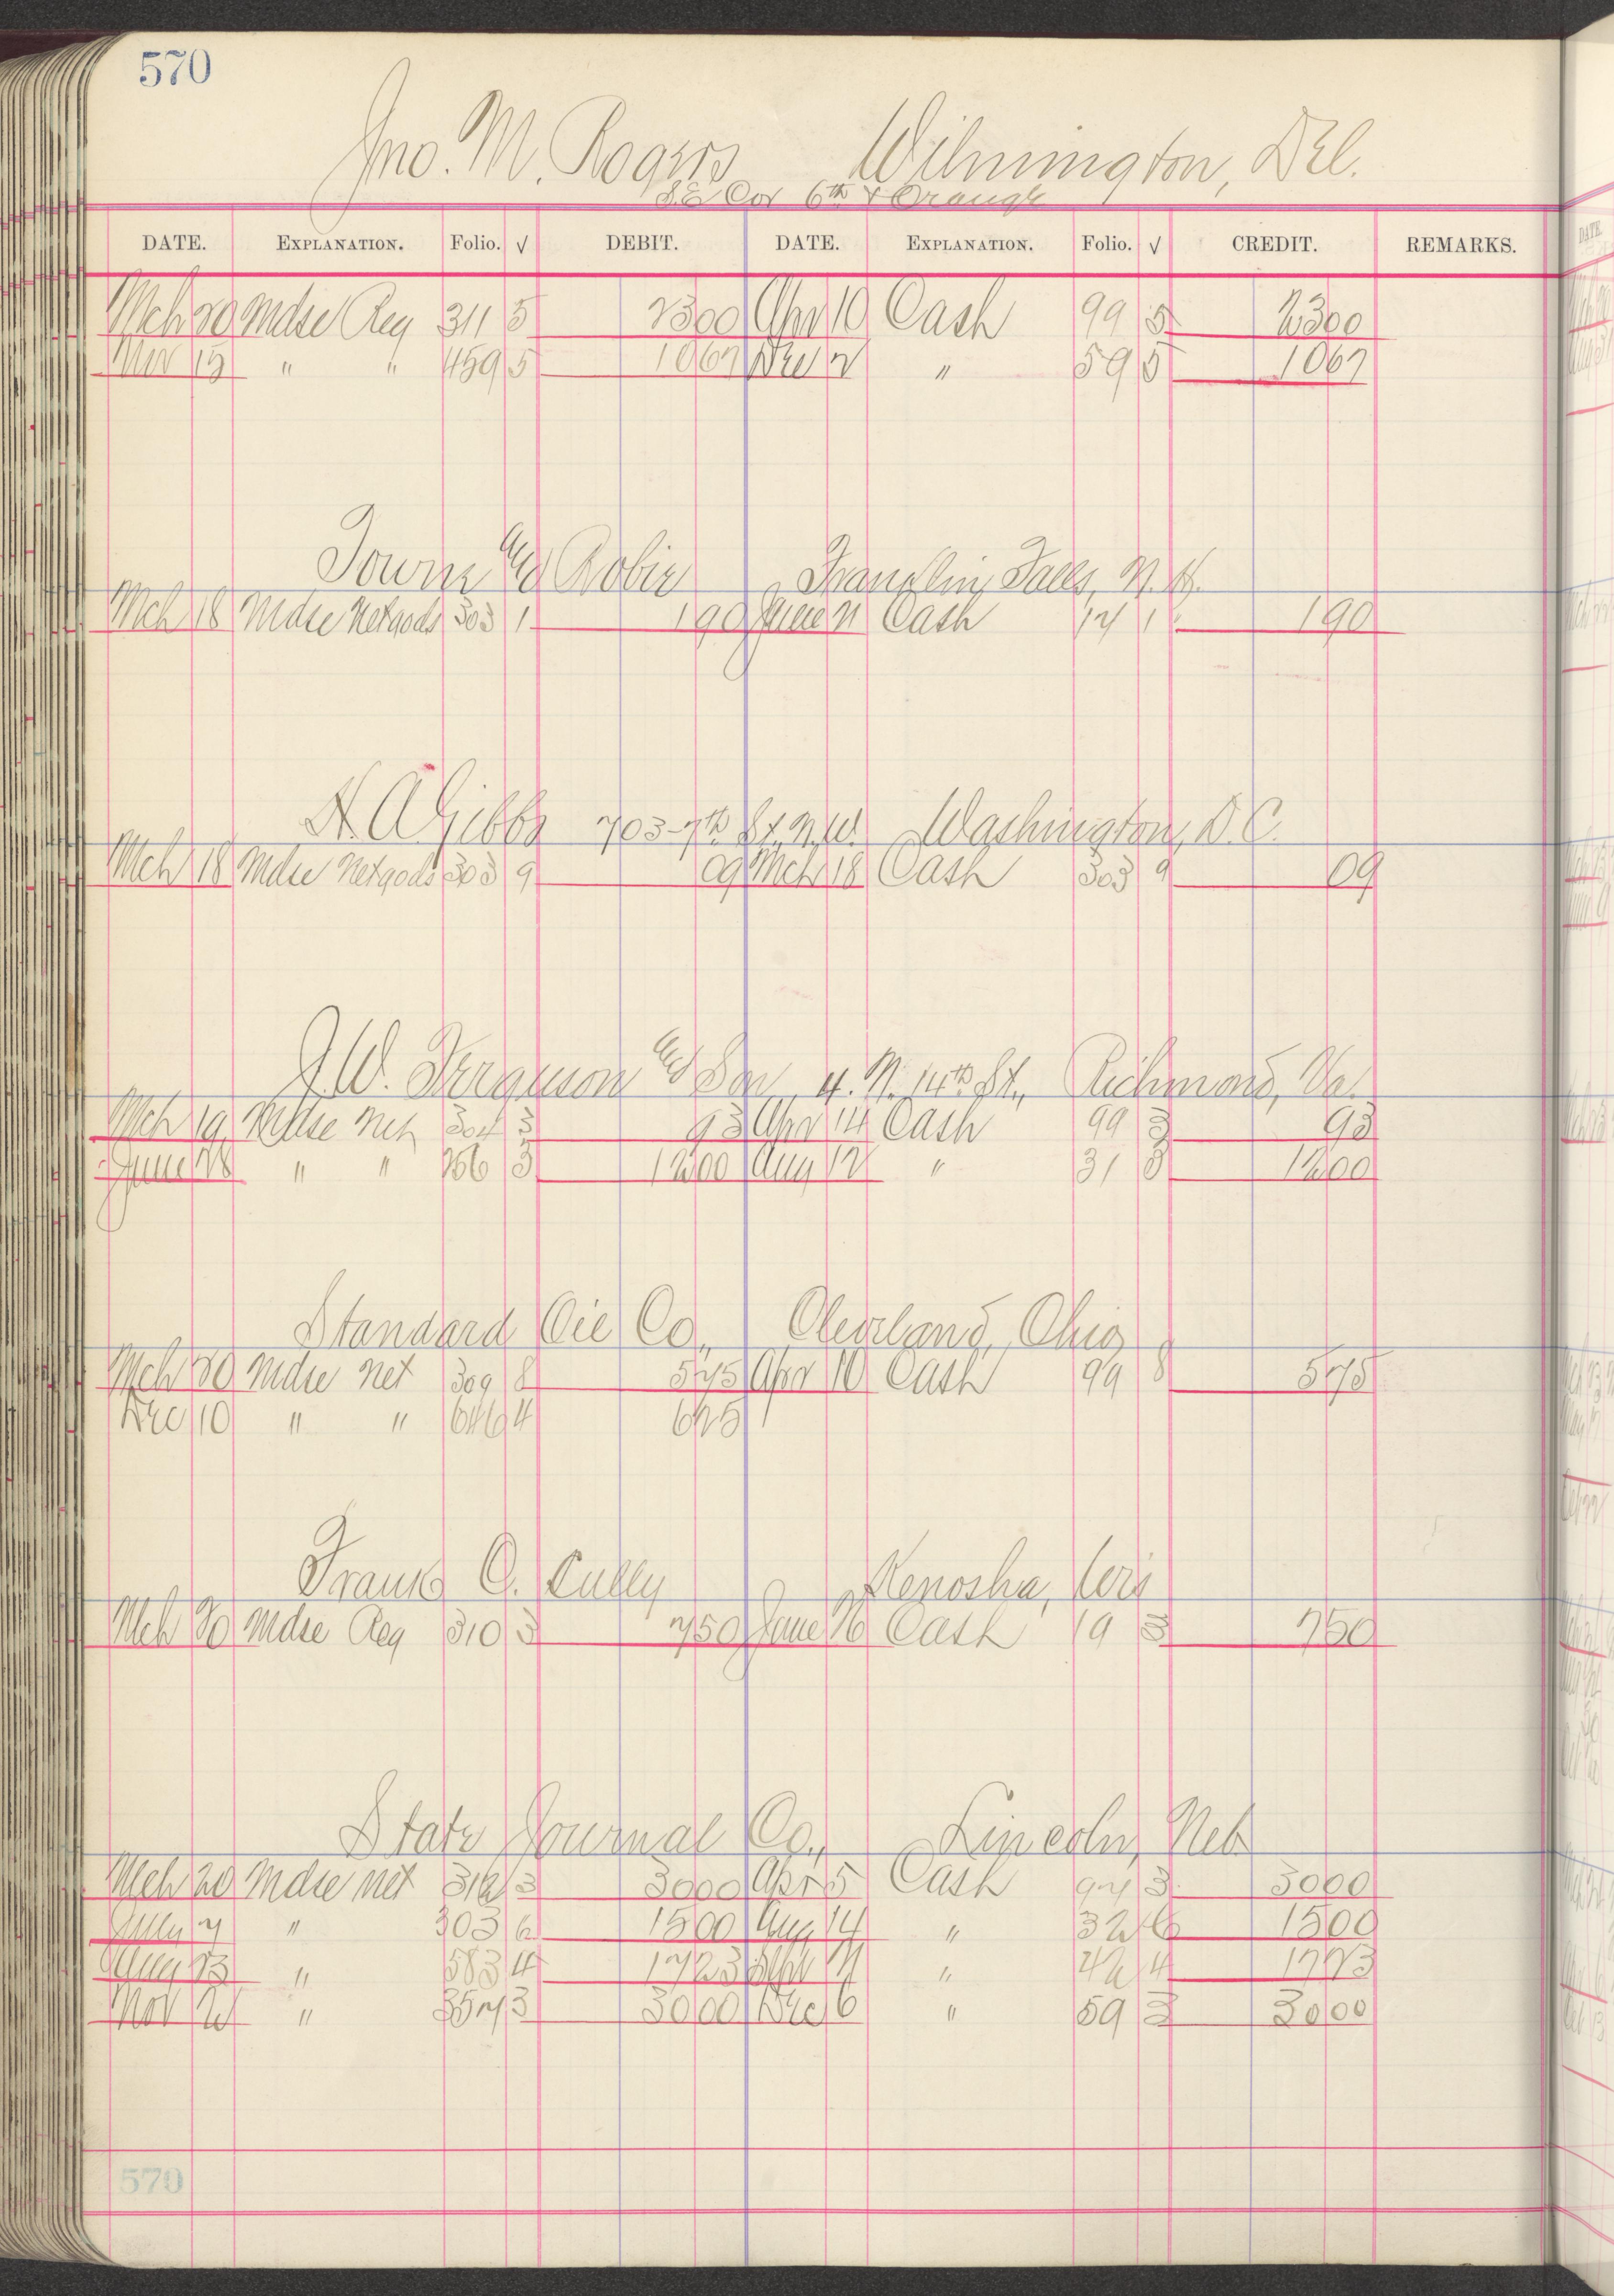 570
Jno. M. Rogers Wilmington, Del.
S.E. Cor 6th & Orange
DATE. EXPLANATION. Folio. √ DEBIT. DATE. EXPLANATION. Folio. √ CREDIT. REMARKS.
Mch 30 Mdse Reg 311 5 2300 Apr 10 Cash 99 5 2300
Nov 15 " " 459 5 1067 Dec " 59 5 1067
Towne & Robie Franklin Falls, N.H.
Mch 18 Mdse Net gods 303 1 190 June 11 Cash 17 1 190
H. A. Gibbs 703-7th St. N.W. Washington, D.C.
Mch 18 Mdse Net gods 303 9 09 Mch 18 Cash 303 9 09
J. W. Ferguson & Son 4. N. 14th St., Richmond, Va.
Mch 19 Mdse Net 304 3 93 Apr 14 Cash 99 3 93
June 28 " " 266 3 1200 Aug 12 " 31 3 1200
Standard Oil Co., Cleveland, Ohio
Mch 30 Mdse Net 309 8 575 Apr 10 Cash 99 8 575
Dec 10 " " 646 4 625
Frank C. Cully Kenosha, Wis
Mch 30 Mdse Reg 310 3 750 June 26 Cash 19 3 750
State Journal Co., Lincoln, Neb
Mch 20 Mdse Net 312 3 3000 Apr 5 Cash 97 3 3000
July 7 " 303 6 1500 Aug 14 " 32 6 1500
Aug 23 " 583 4 1723 Sept 11 " 42 4 1723
Nov 21 " 357 3 3000 Dec 6 " 59 3 3000
570